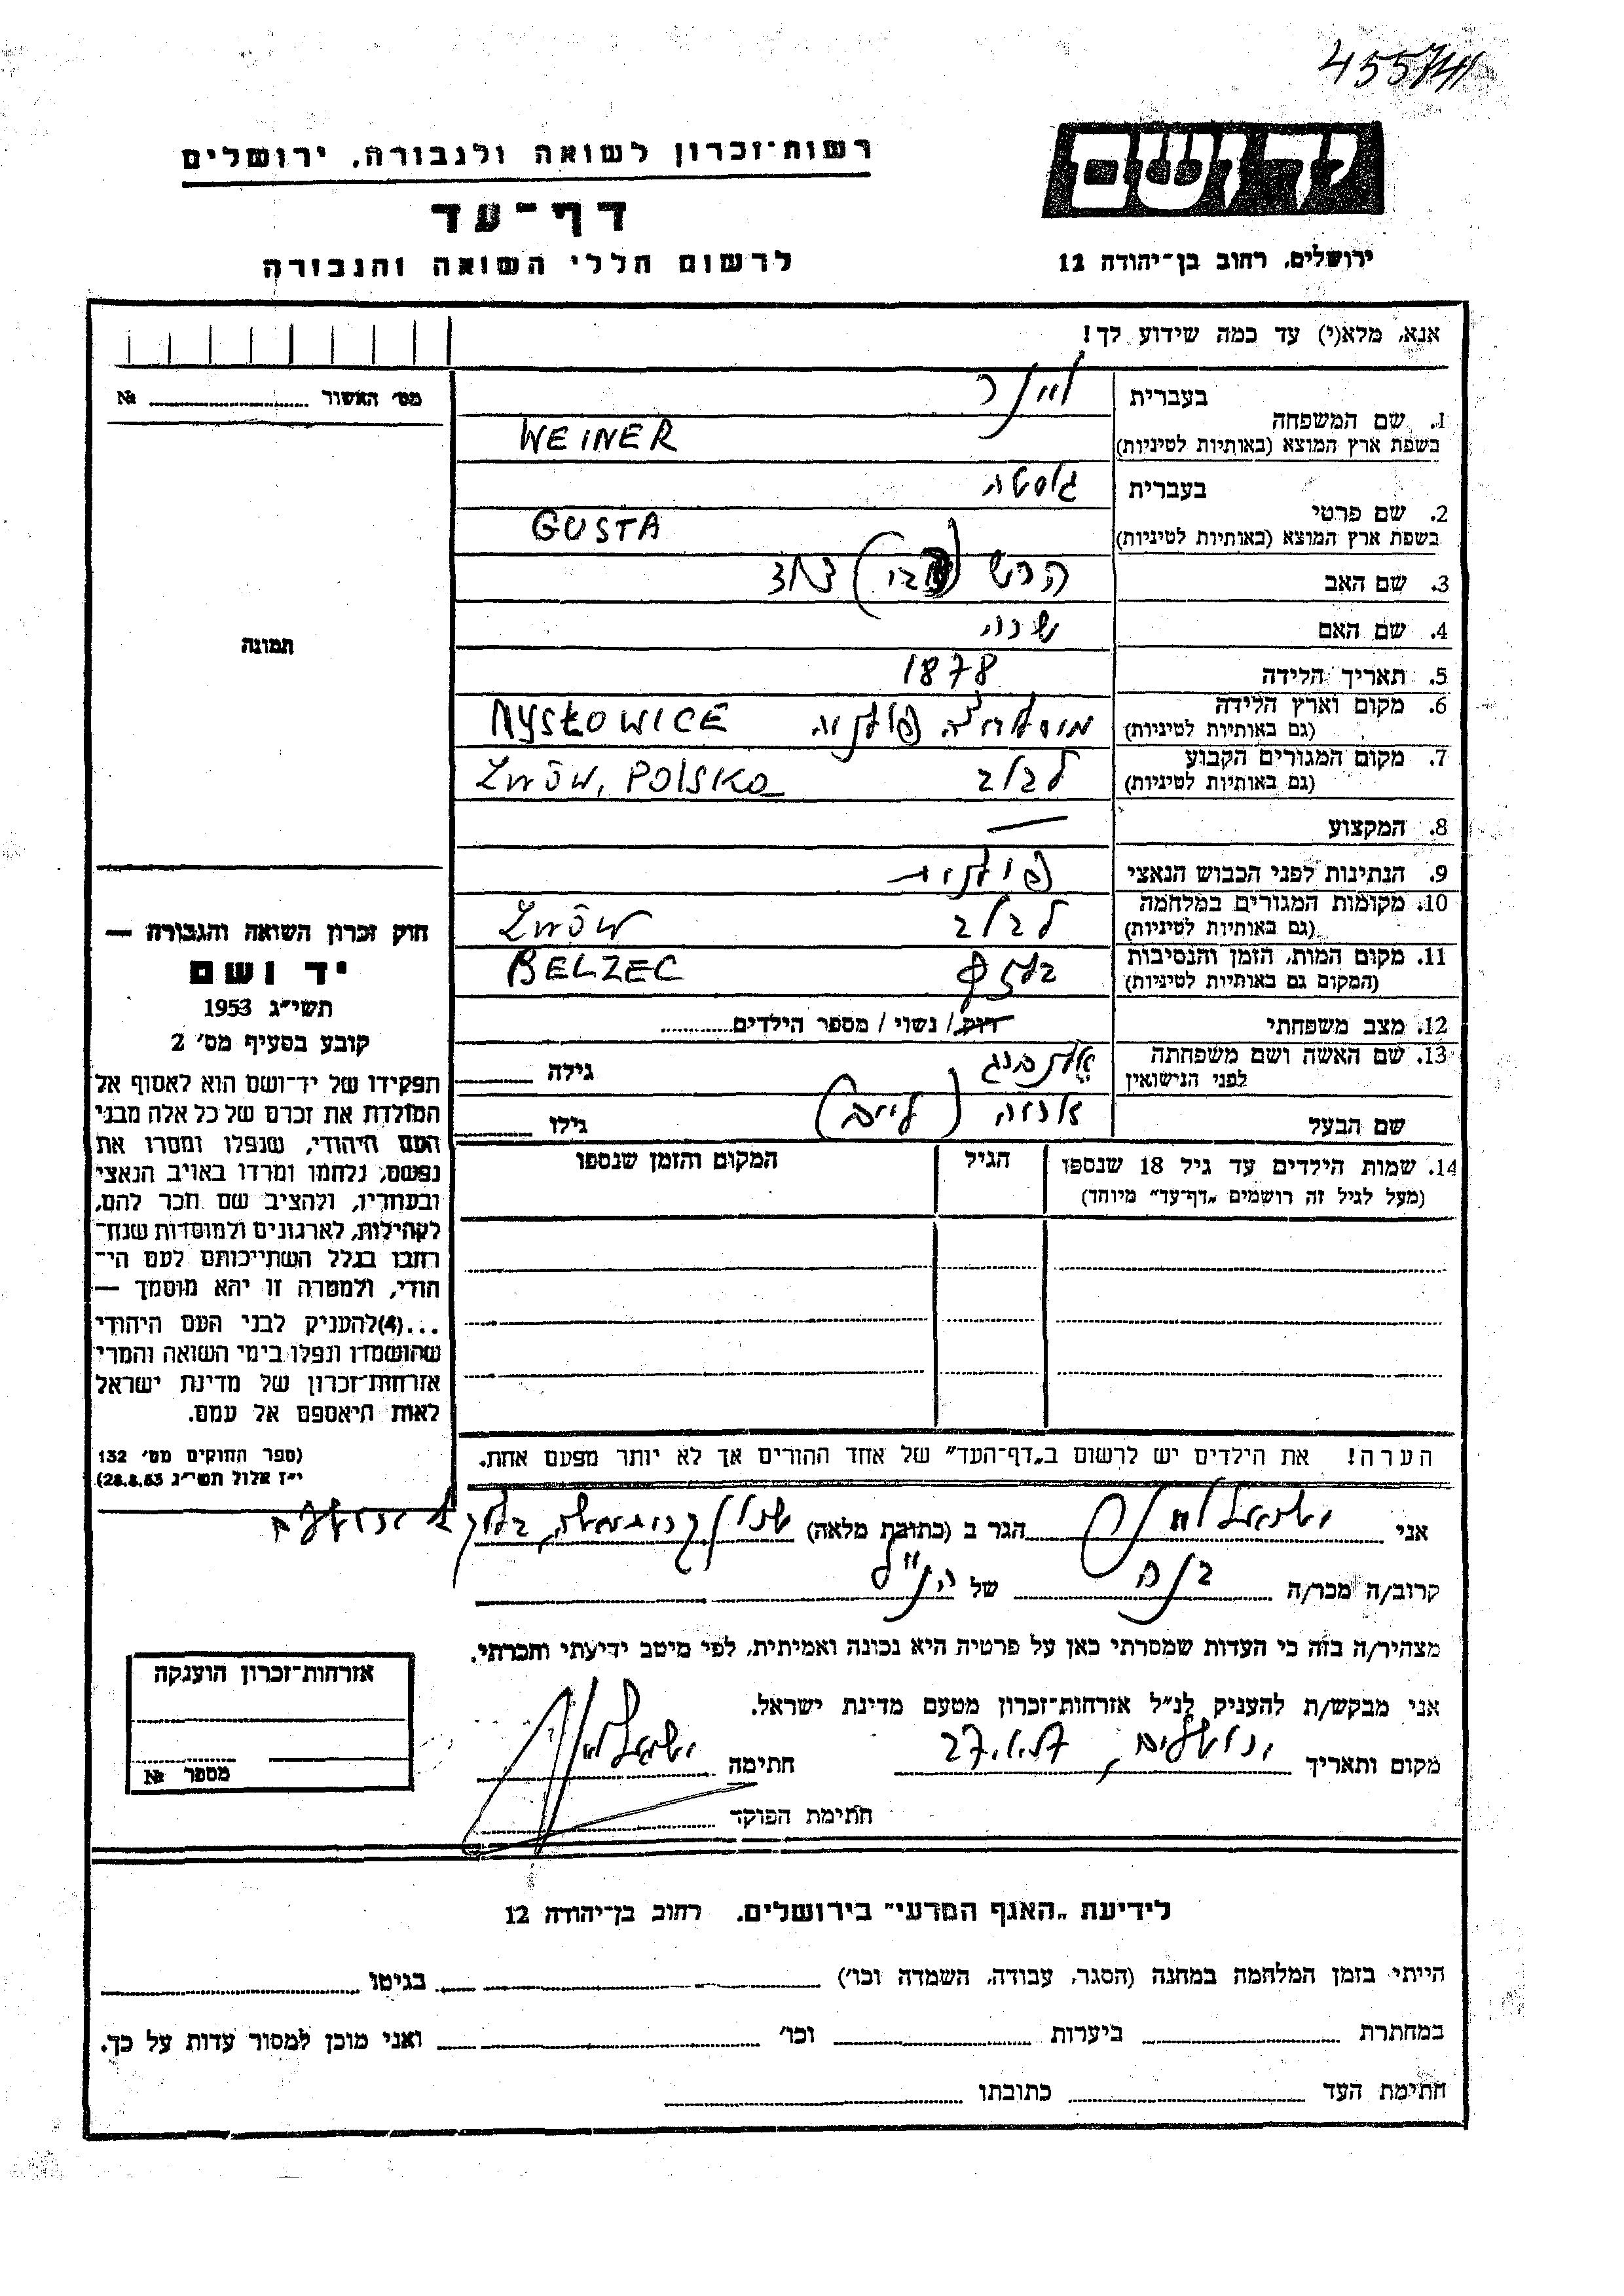 455741
יד ושם
רשות־זכרון לשואה ולגבורה, ירושלים
דף־עד
לרשום חללי השואה והגבורה
ירושלים, רחוב בן־יהודה 12
אנא, מלא(י) עד כמה שידוע לך!
מס׳ האשור № 
תמונה
1. שם המשפחה בעברית ויינר
בשפת ארץ המוצא (באותיות לטיניות) WEINER
2. שם פרטי בעברית גוסטה
בשפת ארץ המוצא (באותיות לטיניות) GUSTA
3. שם האב הרש
4. שם האם שרה
5. תאריך הלידה 1878
6. מקום וארץ הלידה
(גם באותיות לטיניות) פולניה MYSŁOWICE
7. מקום המגורים הקבוע
(גם באותיות לטיניות) לבוב LWÓW, POLSKA
8. המקצוע —
9. הנתינות לפני הכבוש הנאצי פולנית
10. מקומות המגורים במלחמה
(גם באותיות לטיניות) לבוב LWÓW
11. מקום המות, הזמן והנסיבות
(המקום גם באותיות לטיניות) BELZEC
12. מצב משפחתי רווק / נשוי / מספר הילדים
13. שם האשה ושם משפחתה
לפני הנישואין גילה
שם הבעל גילו
14. שמות הילדים עד גיל 18 שנספו
(מעל לגיל זה רושמים „דף־עד״ מיוחד)
הגיל
המקום והזמן שנספו
חוק זכרון השואה והגבורה —
יד ושם
תשי״ג 1953
קובע בסעיף מס׳ 2
תפקידו של יד־ושם הוא לאסוף אל
המולדת את זכרם של כל אלה מבני
העם היהודי, שנפלו ומסרו את
נפשם, נלחמו ומרדו באויב הנאצי
ובעוזריו, ולהציב שם וזכר להם,
לקהילות, לארגונים ולמוסדות שנח־
רבו בגלל השתייכותם לעם הי־
הודי, ולמטרה זו יהא מוסמך —
...(4) להעניק לבני העם היהודי
שהושמדו ונפלו בימי השואה והמרי
אזרחות־זכרון של מדינת ישראל
לאות היאספם אל עמם.
(ספר החוקים מס׳ 132
י״ז אלול תשי״ג 28.8.53)
הערה! את הילדים יש לרשום ב„דף־העד״ של אחד ההורים אך לא יותר מפעם אחת.
אני ישראל הגר ב (כתובת מלאה) ירושלים
קרוב/ה מכר/ה בנה של הנ״ל
מצהיר/ה בזה כי העדות שמסרתי כאן על פרטיה היא נכונה ואמיתית, לפי מיטב ידיעתי והכרתי.
אני מבקש/ת להעניק לנ״ל אזרחות־זכרון מטעם מדינת ישראל.
מקום ותאריך ירושלים, חתימה
חתימת הפוקד
אזרחות־זכרון הוענקה
מספר №
לידיעת „האגף המדעי״ בירושלים, רחוב בן־יהודה 12
הייתי בזמן המלחמה במחנה (הסגר, עבודה, השמדה וכו׳) בגיטו
במחתרת ביערות וכו׳ ואני מוכן למסור עדות על כך.
חתימת העד כתובתו